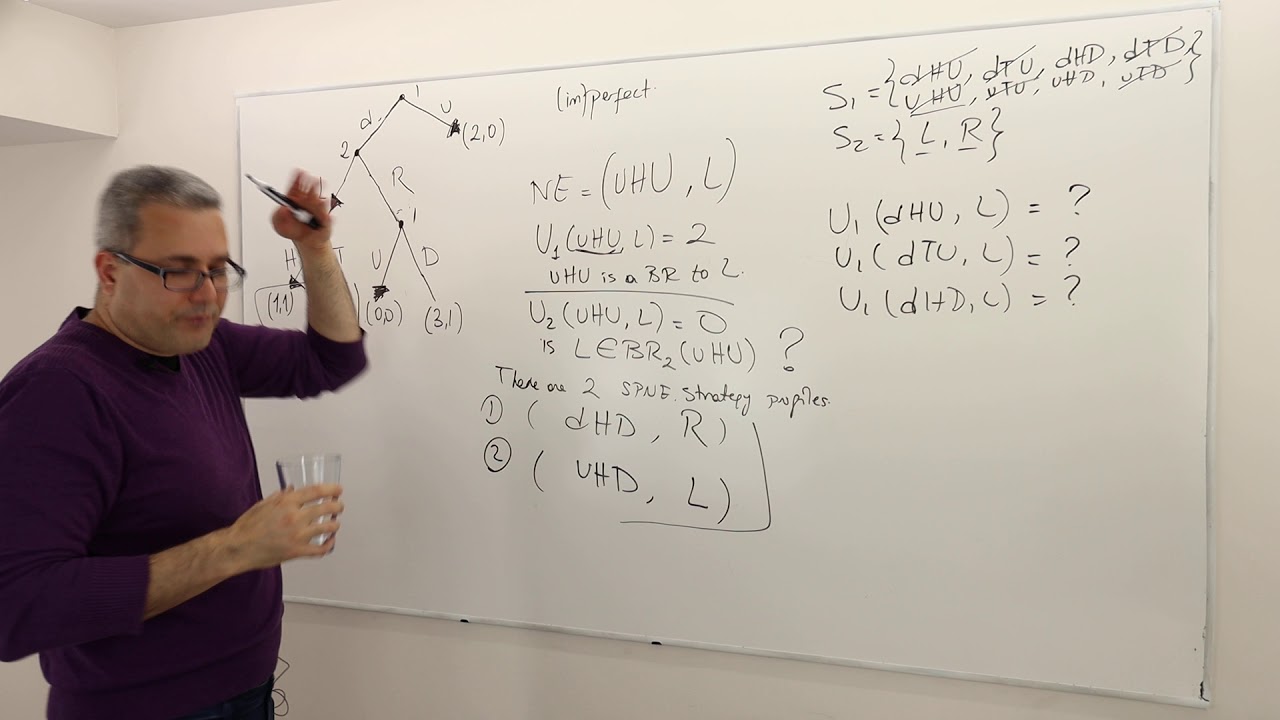 1
d
U
(2,0)
2
L
R
1
H
T
U
D
(1,1)
(0,0)
(3,1)
(im)perfect.
NE = (UHU, L)
U1(UHU, L) = 2
UHU is a BR to L.
U2(UHU, L) = 0
is L∈BR2(UHU) ?
There are 2 SPNE. Strategy profiles.
① (dHD, R)
② (UHD, L)
S1 = {dHU, dTU, dHD, dTD,
UHU, UTU, UHD, UTD}
S2 = {L, R}
U1 (dHU, L) = ?
U1 (dTU, L) = ?
U1 (dHD, L) = ?